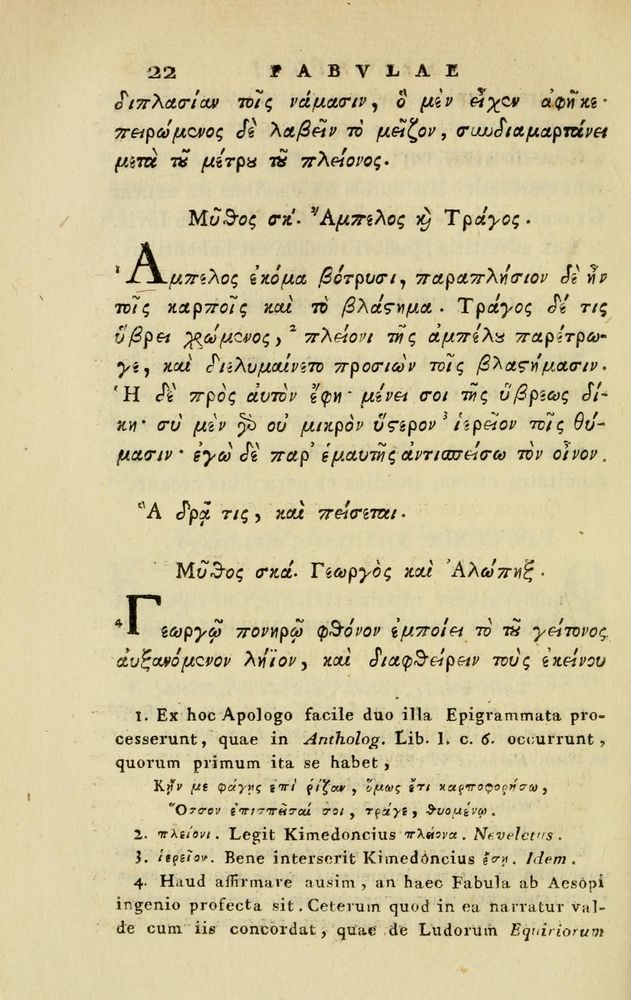 22 FABVLAE
διπλασίαν τοῖς νάμασιν, ὃ μὲν εἶχεν ἀφῆκε·
πειρώμενος δὲ λαβεῖν τὸ μεῖζον, συνδιαμαρτάνει
μετὰ τȣ͂ μέτρȣ τȣ͂ πλείονος.
Μῦθος σκ΄. Ἄμπελος κ̀ Τράγος.
¹Ἄμπελος ἐκόμα βότρυσι, παραπλήσιον δὲ ἦν
τοῖς καρποῖς καὶ τὸ βλάϛημα. Τράγος δέ τις
ὕβρει χρώμενος, ² πλείονι τῆς ἀμπέλȣ παρέτρω-
γε, καὶ διελυμαίνετο προσιὼν τοῖς βλαϛήμασιν.
Ἡ δὲ πρὸς αὐτὸν ἔφη· μένει σοι τῆς ὕβρεως δί-
κη· σὺ μὲν γὰρ οὐ μικρὸν ὕϛερον ³ ἱερεῖον τοῖς θύ-
μασιν· ἐγὼ δὲ παρ' ἐμαυτῆς ἀντισπείσω τὸν οἶνον.
Ἃ δρᾷ τις, καὶ πείσεται.
Μῦθος σκά. Γεωργὸς καὶ Ἀλώπηξ.
⁴ Γεωργῷ πονηρῷ φθόνον ἐμποίει τὸ τȣ͂ γείτονος
ἀυξανόμενον λήϊον, καὶ διαφθείρειν τοὺς ἐκείνου
1. Ex hoc Apologo facile duo illa Epigrammata pro-
cesserunt, quae in Antholog. Lib. 1. c. 6. occurrunt,
quorum primum ita se habet,
Κἤν με φάγῃς ἐπὶ ῥίζαν, ὅμως ἔτι καρποφορήσω,
Ὅσσον ἐπισπεῖσαί σοι, τράγε, θυομένῳ.
2. πλείονι. Legit Kimedoncius πλείονα. Neveletus.
3. ἱερεῖον. Bene interserit Kimedoncius ἔσῃ. Idem.
4. Haud affirmare ausim, an haec Fabula ab Aesopi
ingenio profecta sit. Ceterum quod in ea narratur val-
de cum iis concordat, quae de Ludorum Equiriorum